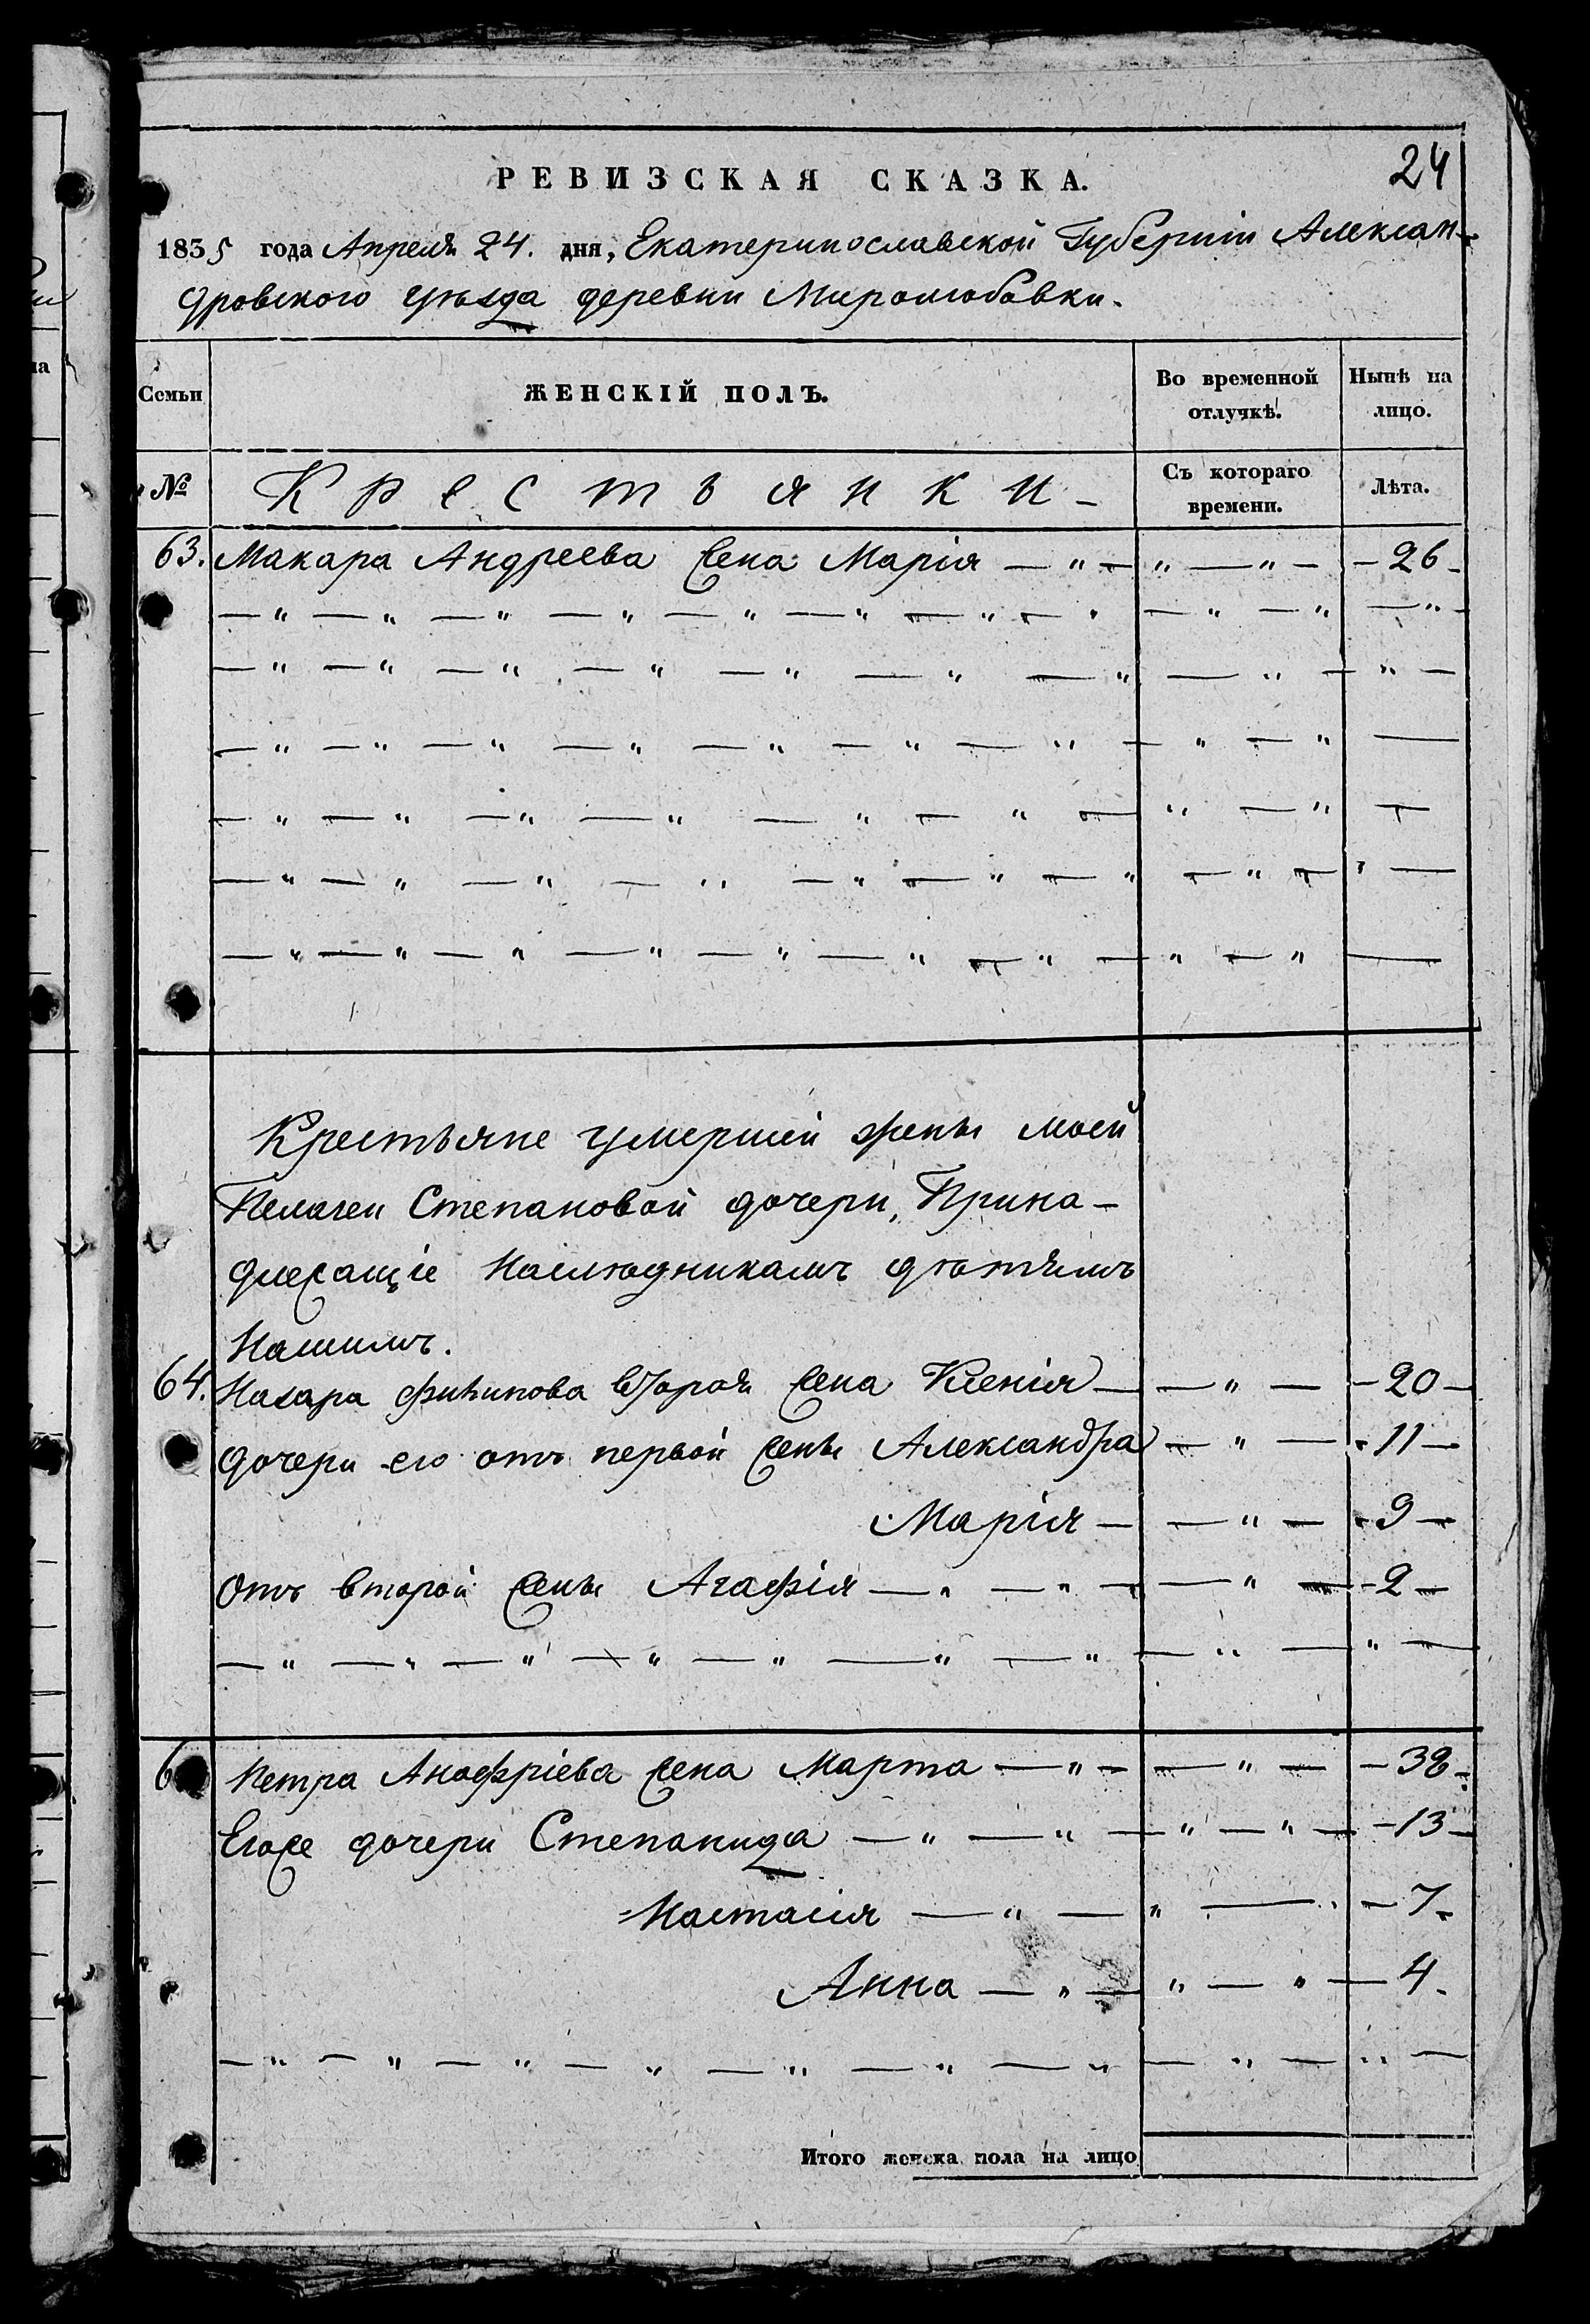 24
РЕВИЗСКАЯ СКАЗКА.
1835 года Апреля 24. дня, Екатеринославской Губернiи Алексан-
дровского уѣзда деревни Миролюбовки.
Семьи
ЖЕНСКIЙ ПОЛЪ.
Во временной отлучкѣ.
Нынѣ на лицо.
№
Крестьянки -
Съ котораго времени.
Лѣта.
63. Макара Андреева жена Марiя — " — " — " — - 26 -
Крестьяне умершей жены моей
Пелагеи Степановой дочери, Прина-
длежащiе Наслѣдникамъ дѣтямъ
Нашимъ.
64. Назара Филипова вторая жена Ксенiя — — " — - 20 -
дочери его отъ первой жены Александра — " — - 11 —
Марiя — — " — - 9 —
Отъ второй жены Агафiя — " — " — — " — - 2 —
6 Петра Анофрiева жена Марта — " — — " — - 38 -
Егоже дочери Степанида — " — " — " — " — - 13 -
Настасiя — " — " — - 7 -
Анна — " — " — " — 4 -
Итого женска пола на лицо